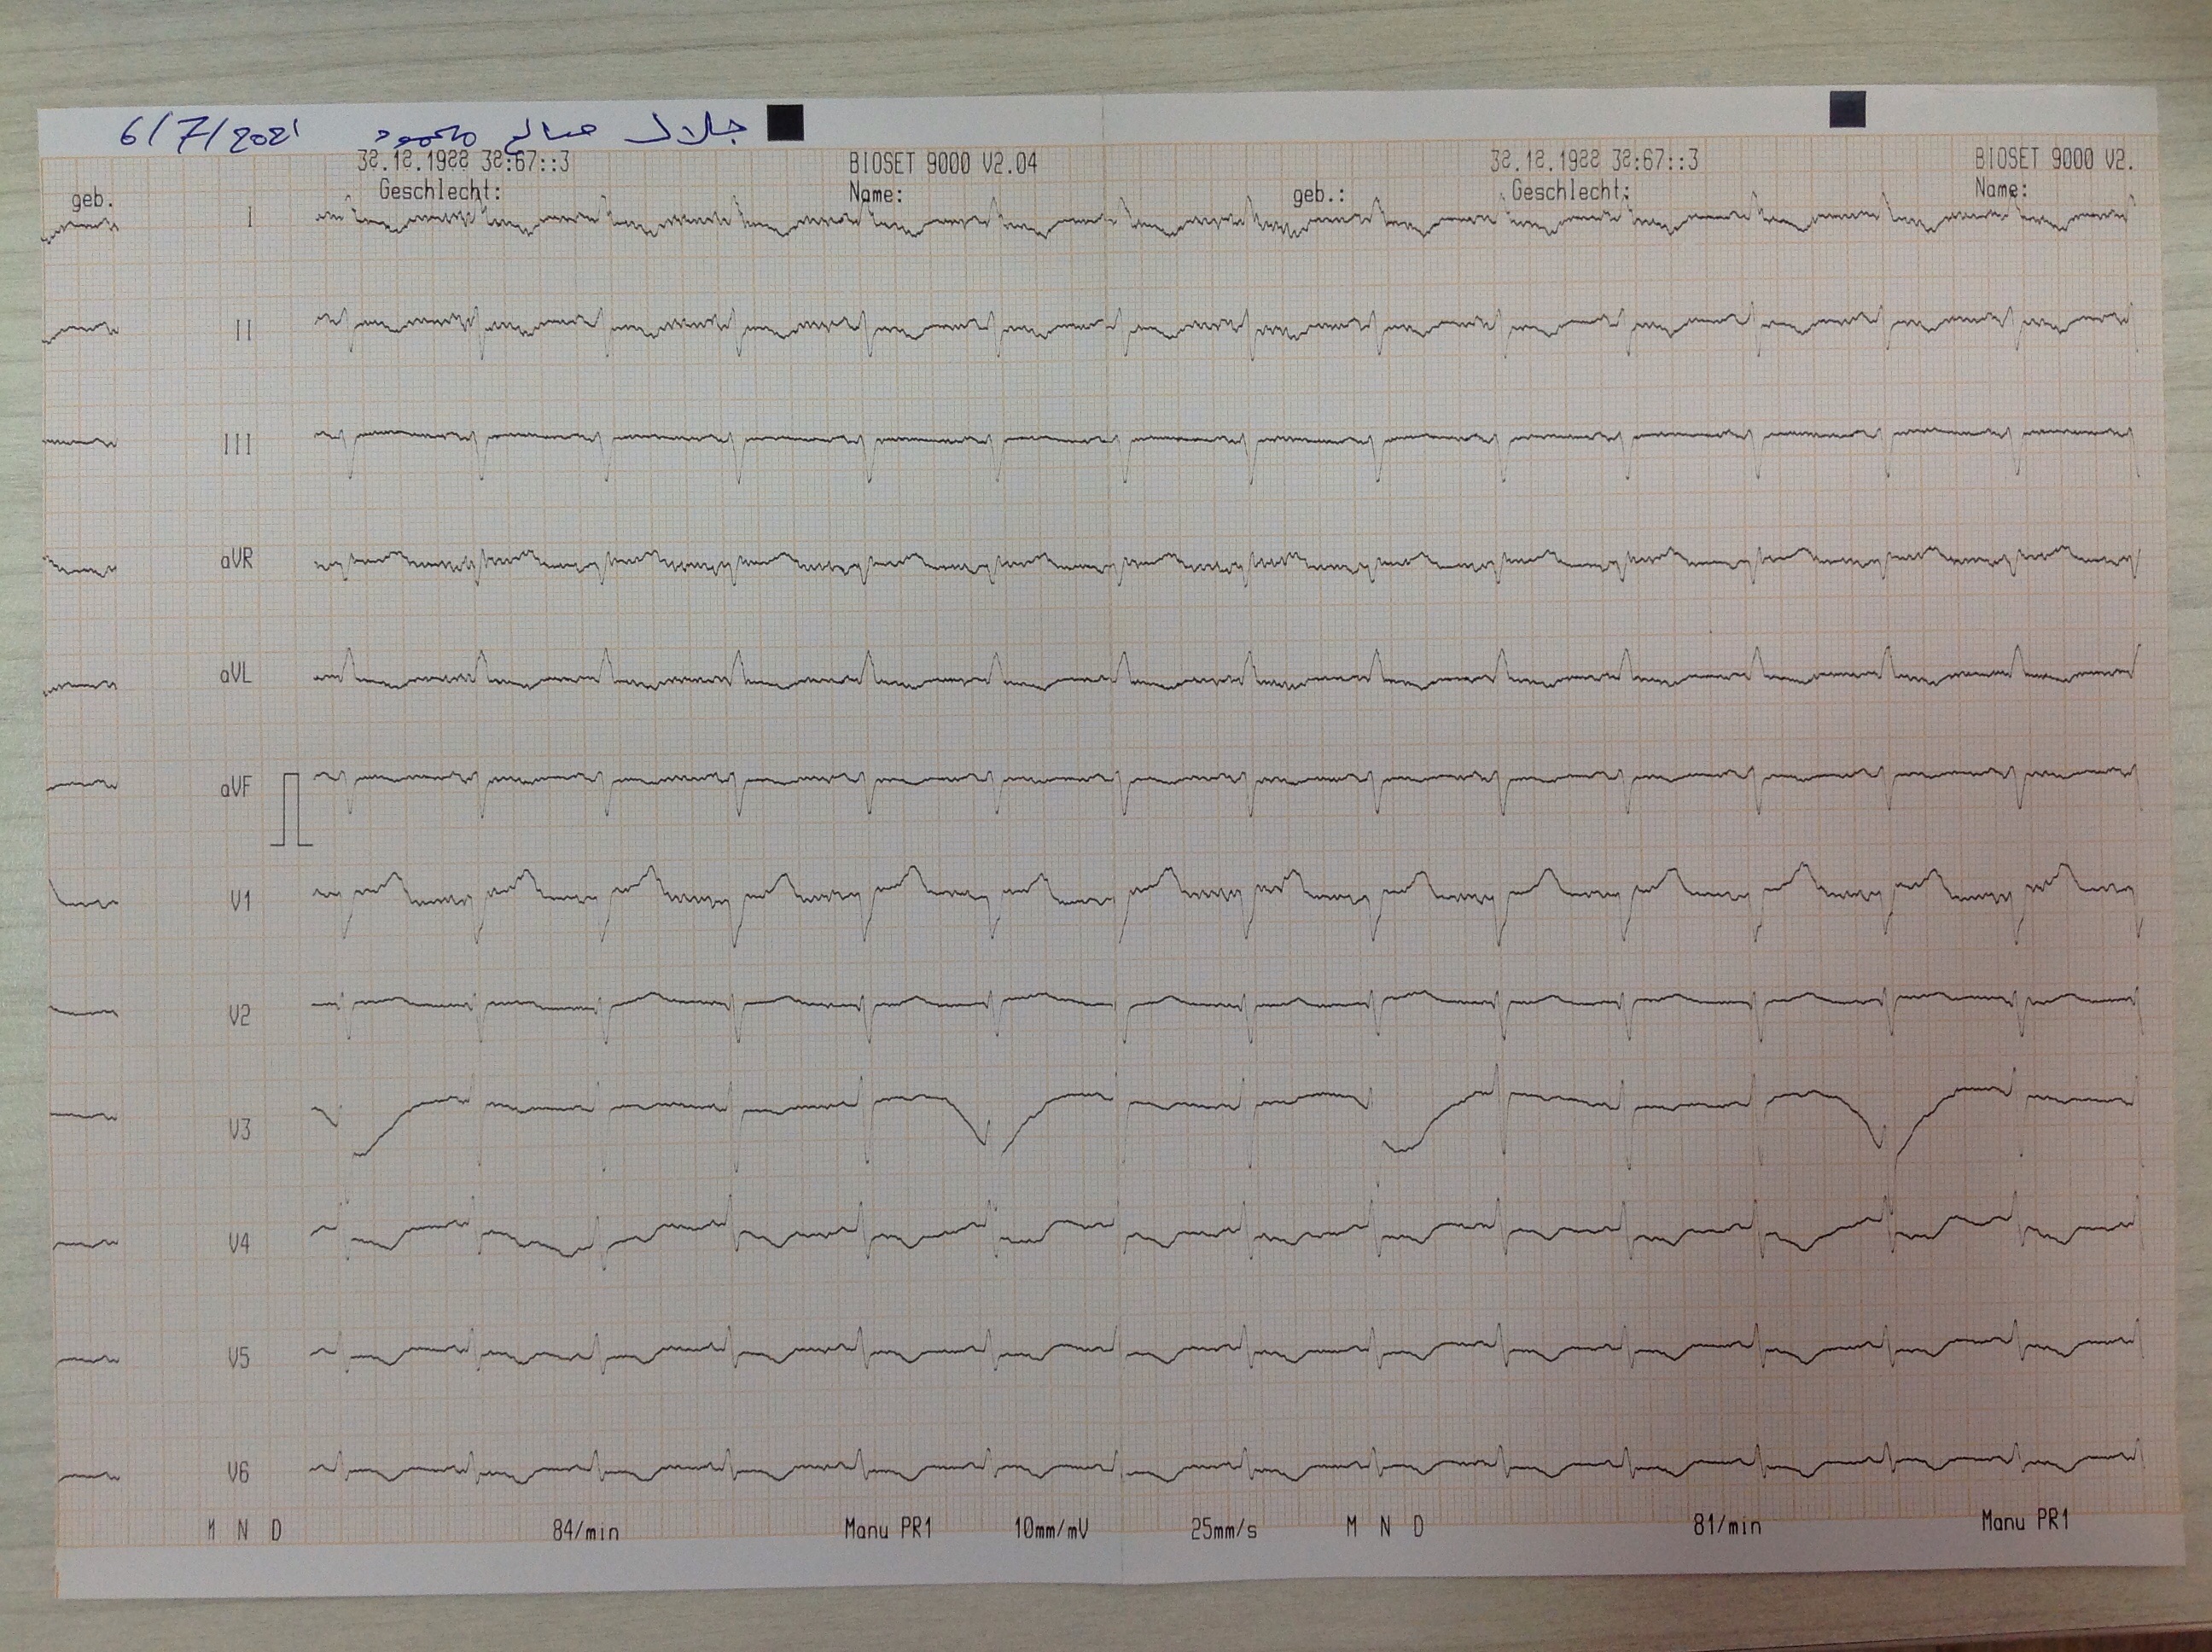 6/7/2021 جلال صالح محمود
38.18.1988 38:67::3 BIOSET 9000 V2.04 38.18.1988 38:67::3 BIOSET 9000 V2.
geb. Geschlecht: Name: geb.: Geschlecht: Name:
I
II
III
aVR
aVL
aVF
V1
V2
V3
V4
V5
V6
M N D 84/min Manu PR1 10mm/mV 25mm/s M N D 81/min Manu PR1